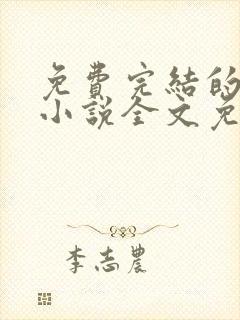 免費完結的
小說全文免
李志農